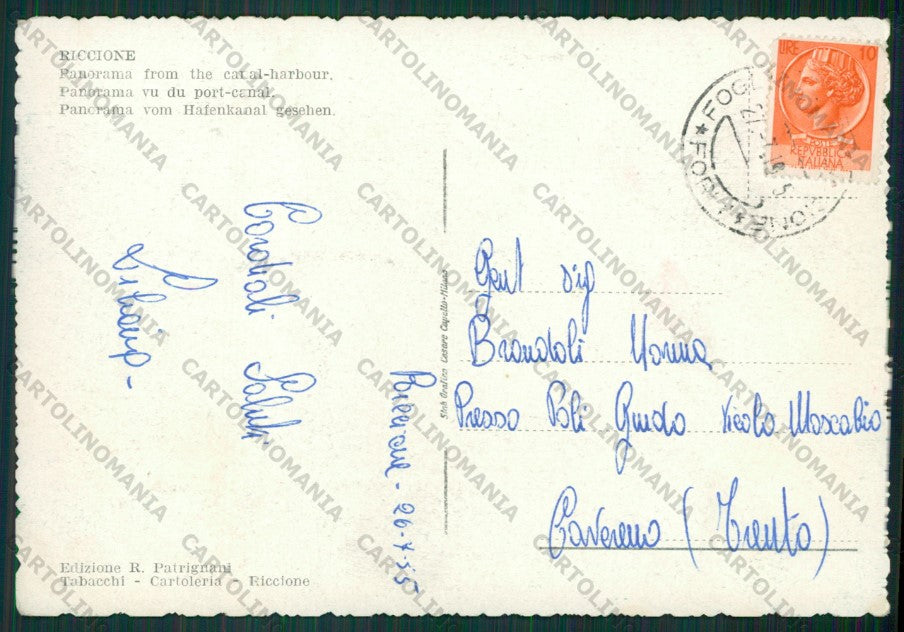 RICCIONE
Panorama from the canal-harbour.
Panorama vu du port-canal.
Panorama vom Hafenkanal gesehen.
LIRE 10
POSTE
REPVBBLICA
ITALIANA
Cordiali Saluti
Riccione - 26-7-55
Stab. Grafico Cesare Capello-Milano
Gent Sig
Brandoli Norma
Presso Poli Guido Vicolo Moscabio
Cavereno (Trento)
Edizione R. Patrignani
Tabacchi - Cartoleria - Riccione
CARTOLINOMANIA